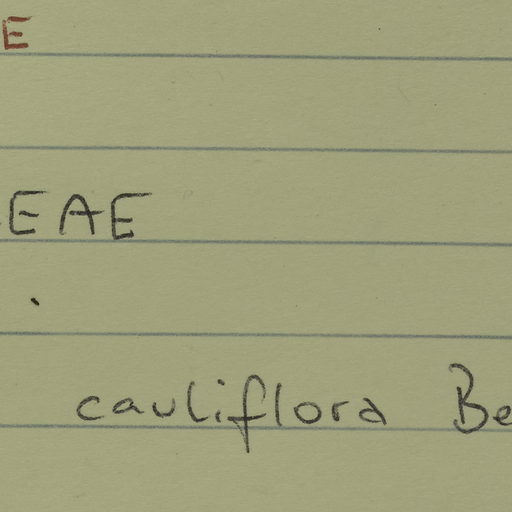 E
EAE
cauliflora Be